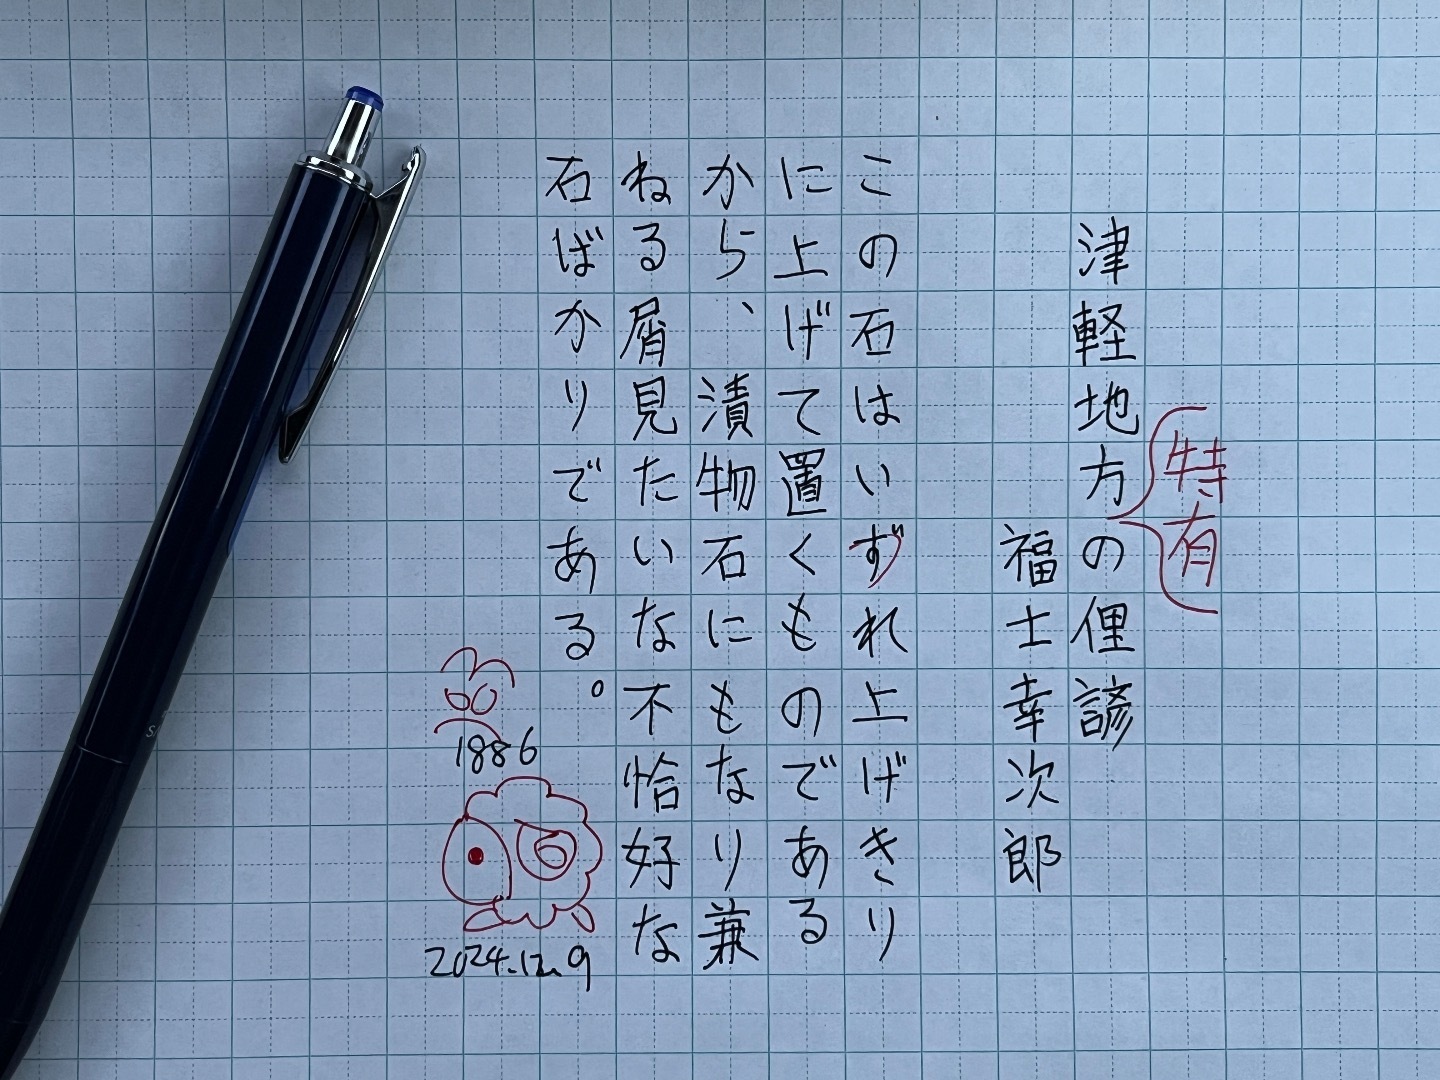 津軽地方特有の俚諺
福士幸次郎
この石はいずれ上げきり
に上げて置くものである
から、漬物石にもなり兼
ねる屑見たいな不恰好な
石ばかりである。
1886
2024.12.9